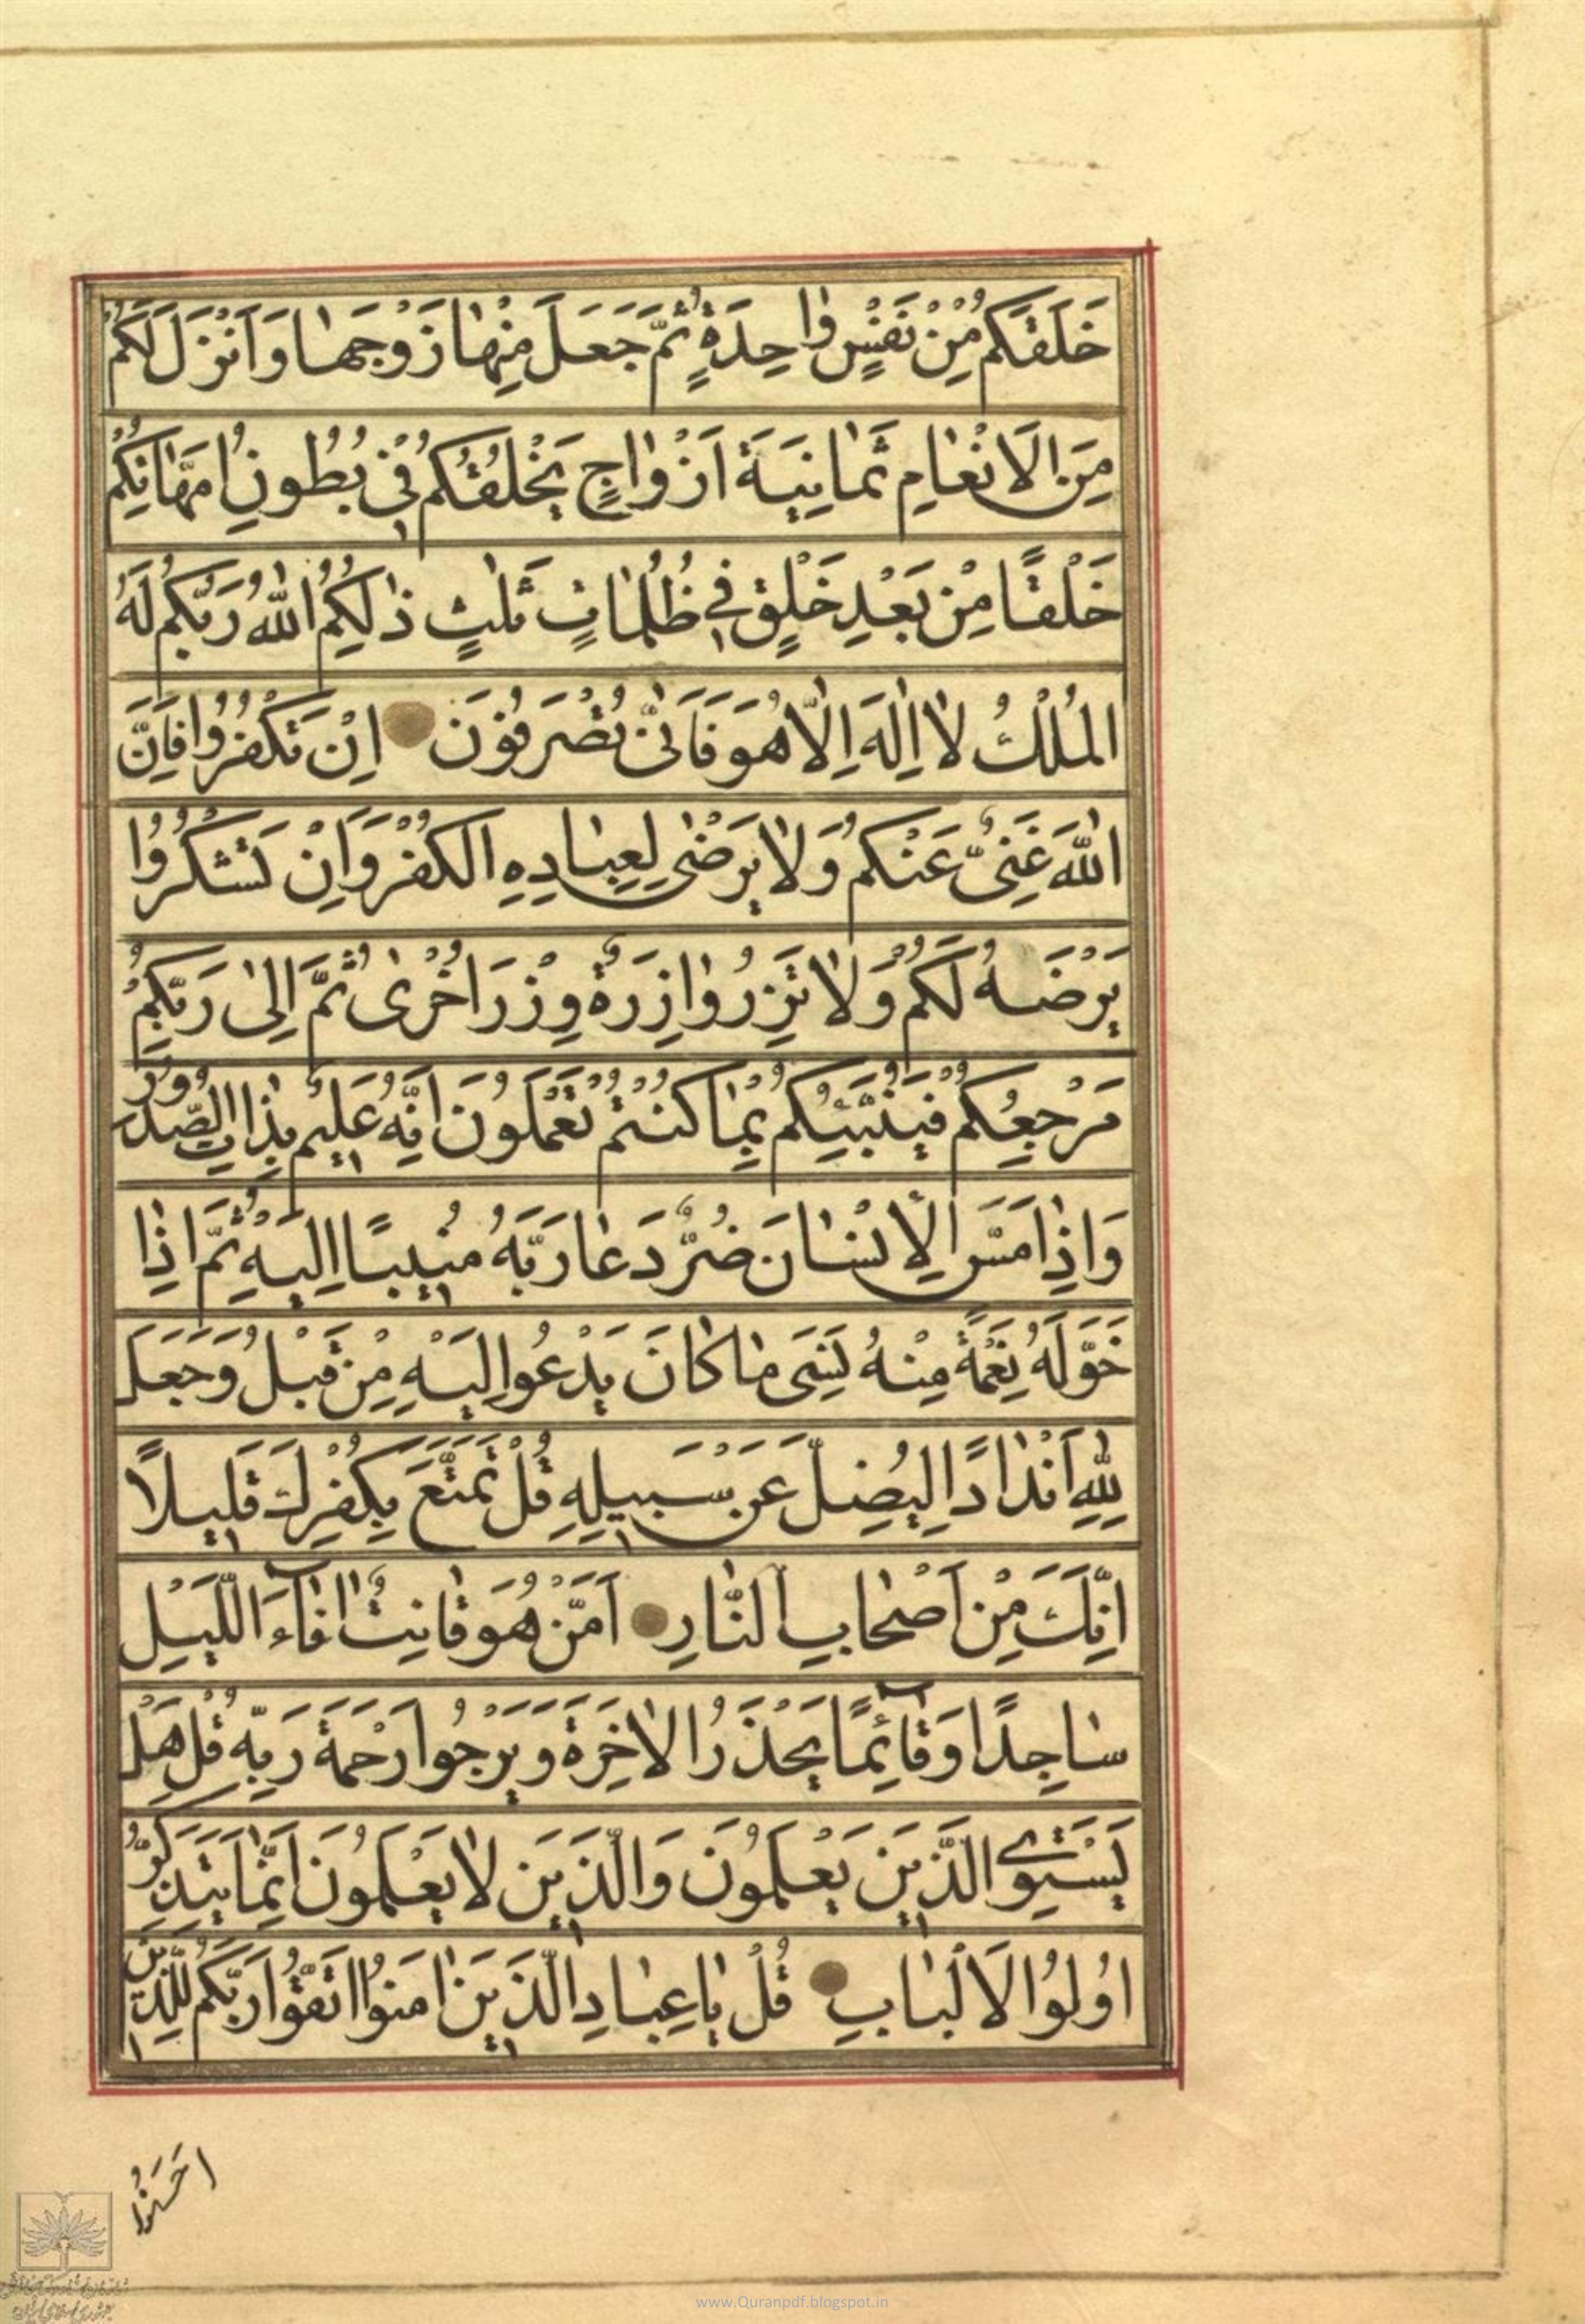 خَلَقَكُمْ مِنْ نَفْسٍ وٰاحِدَةٍ ثُمَّ جَعَلَ مِنْهٰا زَوْجَهٰا وَ اَنْزَلَ لَكُمْ
مِنَ الَانْعٰامِ ثَمٰانِيَةَ اَزْوٰاجٍ يَخْلُقُكُمْ فِي بُطُونِ اُمَّهٰاتِكُمْ
خَلْقًا مِنْ بَعْدِ خَلْقٍ فِي ظُلُمٰاتٍ ثَلٰثٍ ذٰلِكُمُ اللّٰهُ رَبُّكُمْ لَهُ
المُلْكُ لٰا اِلٰهَ اِلّٰا هُوَ فَاَنّٰى تُصْرَفُونَ اِنْ تَكْفُرُوا فَاِنَّ
اللّٰهَ غَنِىٌّ عَنْكُمْ وَلٰا يَرْضٰى لِعِبٰادِهِ الكُفْرَ وَاِنْ تَشْكُرُوا
يَرْضَهُ لَكُمْ وَلٰا تَزِرُ وٰازِرَةٌ وِزْرَ اُخْرٰى ثُمَّ اِلىٰ رَبِّكُمْ
مَرْجِعُكُمْ فَيُنَبِّئُكُمْ بِمٰا كُنْتُمْ تَعْمَلُونَ اِنَّهُ عَلِيمٌ بِذٰاتِ الصُّدُورِ
وَاِذٰا مَسَّ الاِنْسٰانَ ضُرٌّ دَعٰا رَبَّهُ مُنِيبًا اِلَيْهِ ثُمَّ اِذٰا
خَوَّلَهُ نِعْمَةً مِنْهُ نَسِىَ مٰا كٰانَ يَدْعُوا اِلَيْهِ مِنْ قَبْلُ وَجَعَلَ
لِلّٰهِ اَنْدٰادًا لِيُضِلَّ عَنْ سَبِيلِهِ قُلْ تَمَتَّعْ بِكُفْرِكَ قَلِيلًا
اِنَّكَ مِنْ اَصْحٰابِ النّٰارِ اَمَّنْ هُوَ قٰانِتٌ اٰنٰآءَ اللَّيْلِ
سٰاجِدًا وَقٰآئِمًا يَحْذَرُ الاٰخِرَةَ وَيَرْجُوا رَحْمَةَ رَبِّهِ قُلْ هَلْ
يَسْتَوِي الَّذِينَ يَعْلَمُونَ وَالَّذِينَ لٰا يَعْلَمُونَ اِنَّمٰا يَتَذَكَّرُ
اُولُوا الَالْبٰابِ قُلْ يٰا عِبٰادِ الَّذِينَ اٰمَنُوا اتَّقُوا رَبَّكُمْ لِلَّذِينَ
احَسَنُوا
www.Quranpdf.blogspot.in